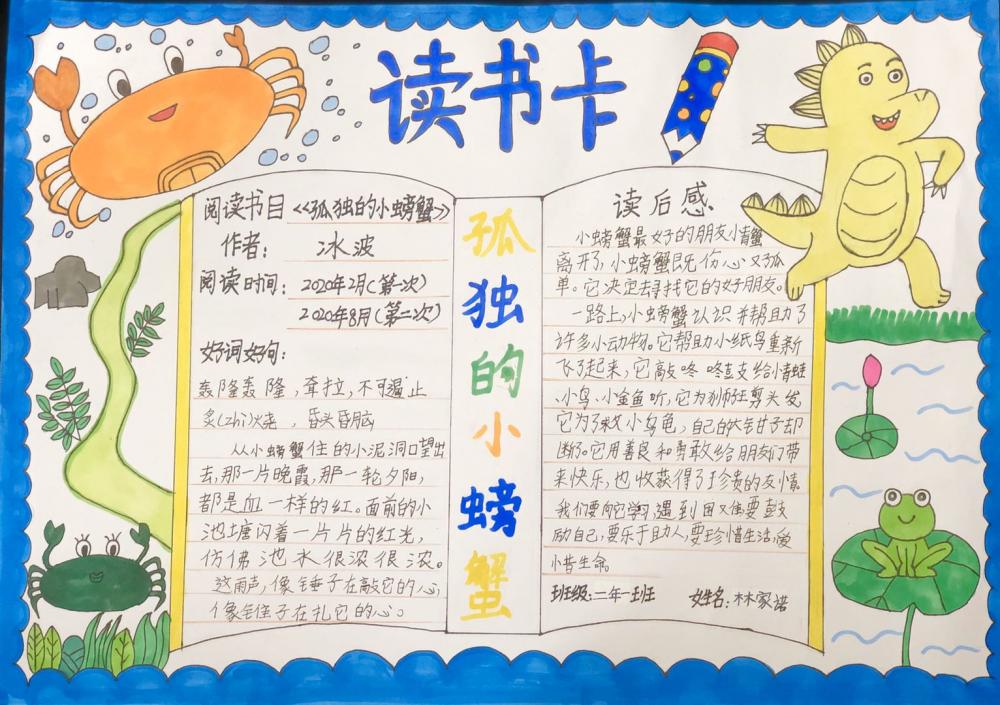 读书卡
阅读书目 《孤独的小螃蟹》
作者： 冰波
阅读时间：2020年2月（第一次）
2020年8月（第二次）
好词好句：
轰隆轰隆，耷拉，不可遏止
炙(zhì)烤，昏头昏脑
从小螃蟹住的小泥洞口望出
去，那一片晚霞，那一轮夕阳，
都是血一样的红。面前的小
池塘闪着一片片的红光，
仿佛池水很浓很浓。
这雨声，像锤子在敲它的心，
像锥子在扎它的心。
孤独的小螃蟹
读后感
小螃蟹最好的朋友小青蟹
离开了，小螃蟹既伤心又孤
单。它决定去寻找它的好朋友。
一路上，小螃蟹认识并帮助了
许多小动物。它帮助小纸鸟重新
飞了起来，它敲咚咚支给小青蛙
、小鸟、小金鱼听，它为狮王剪头发
它为了救小乌龟，自己的大钳子却
断了。它用善良和勇敢给朋友们带
来快乐，也收获得了珍贵的友情。
我们要向它学习遇到困难要鼓
励自己，要乐于助人，要珍惜生活，爱
惜生命。
班级：二年一班 姓名：林家诺